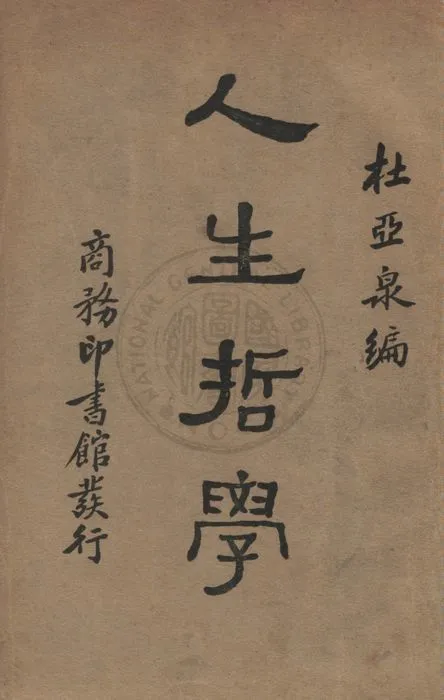 杜亞泉編
人生哲學
商務印書館發行
NATIONAL CENTRAL LIBRARY